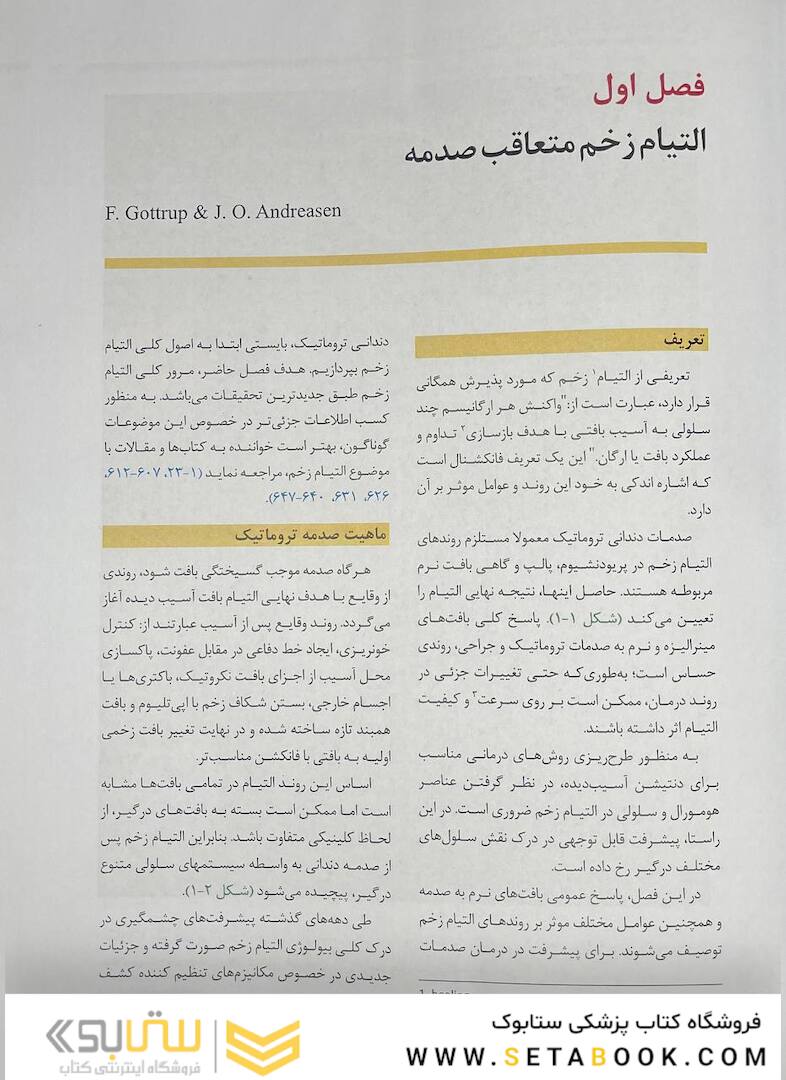 فصل اول
التیام زخم متعاقب صدمه
F. Gottrup & J. O. Andreasen
تعریف
تعریفی از التیام۱ زخم که مورد پذیرش همگانی
قرار دارد، عبارت است از:"واکنش هر ارگانیسم چند
سلولی به آسیب بافتی با هدف بازسازی۲ تداوم و
عملکرد بافت یا ارگان." این یک تعریف فانکشنال است
که اشاره اندکی به خود این روند و عوامل موثر بر آن
دارد.
صدمات دندانی تروماتیک معمولا مستلزم روندهای
التیام زخم در پریودنشیوم، پالپ و گاهی بافت نرم
مربوطه هستند. حاصل اینها، نتیجه نهایی التیام را
تعیین می‌کند (شکل ۱-۱). پاسخ کلی بافت‌های
مینرالیزه و نرم به صدمات تروماتیک و جراحی، روندی
حساس است؛ به‌طوری‌که حتی تغییرات جزئی در
روند درمان، ممکن است بر روی سرعت۳ و کیفیت
التیام اثر داشته باشند.
به منظور طرح‌ریزی روش‌های درمانی مناسب
برای دنتیشن آسیب‌دیده، در نظر گرفتن عناصر
هومورال و سلولی در التیام زخم ضروری است. در این
راستا، پیشرفت قابل توجهی در درک نقش سلول‌های
مختلف درگیر رخ داده است.
در این فصل، پاسخ عمومی بافت‌های نرم به صدمه
و همچنین عوامل مختلف موثر بر روندهای التیام زخم
توصیف می‌شوند. برای پیشرفت در درمان صدمات
دندانی تروماتیک، بایستی ابتدا به اصول کلی التیام
زخم بپردازیم. هدف فصل حاضر، مرور کلی التیام
زخم طبق جدیدترین تحقیقات می‌باشد. به منظور
کسب اطلاعات جزئی‌تر در خصوص این موضوعات
گوناگون، بهتر است خواننده به کتاب‌ها و مقالات با
موضوع التیام زخم، مراجعه نماید (۱-۲۳، ۶۰۷-۶۱۲،
۶۲۶، ۶۳۱، ۶۴۰-۶۴۷).
ماهیت صدمه تروماتیک
هرگاه صدمه موجب گسیختگی بافت شود، روندی
از وقایع با هدف نهایی التیام بافت آسیب دیده آغاز
می‌گردد. روند وقایع پس از آسیب عبارتند از: کنترل
خونریزی، ایجاد خط دفاعی در مقابل عفونت، پاکسازی
محل آسیب از اجزای بافت نکروتیک، باکتری‌ها یا
اجسام خارجی، بستن شکاف زخم با اپی‌تلیوم و بافت
همبند تازه ساخته شده و در نهایت تغییر بافت زخمی
اولیه به بافتی با فانکشن مناسب‌تر.
اساس این روند التیام در تمامی بافت‌ها مشابه
است اما ممکن است بسته به بافت‌های درگیر، از
لحاظ کلینیکی متفاوت باشد. بنابراین التیام زخم پس
از صدمه دندانی به واسطه سیستمهای سلولی متنوع
درگیر، پیچیده می‌شود (شکل ۲-۱).
طی دهه‌های گذشته پیشرفت‌های چشمگیری در
درک کلی بیولوژی التیام زخم صورت گرفته و جزئیات
جدیدی در خصوص مکانیزم‌های تنظیم کننده کشف
فروشگاه کتاب پزشکی ستابوک
WWW.SETABOOK.COM
ستابوک
فروشگاه اینترنتی کتاب